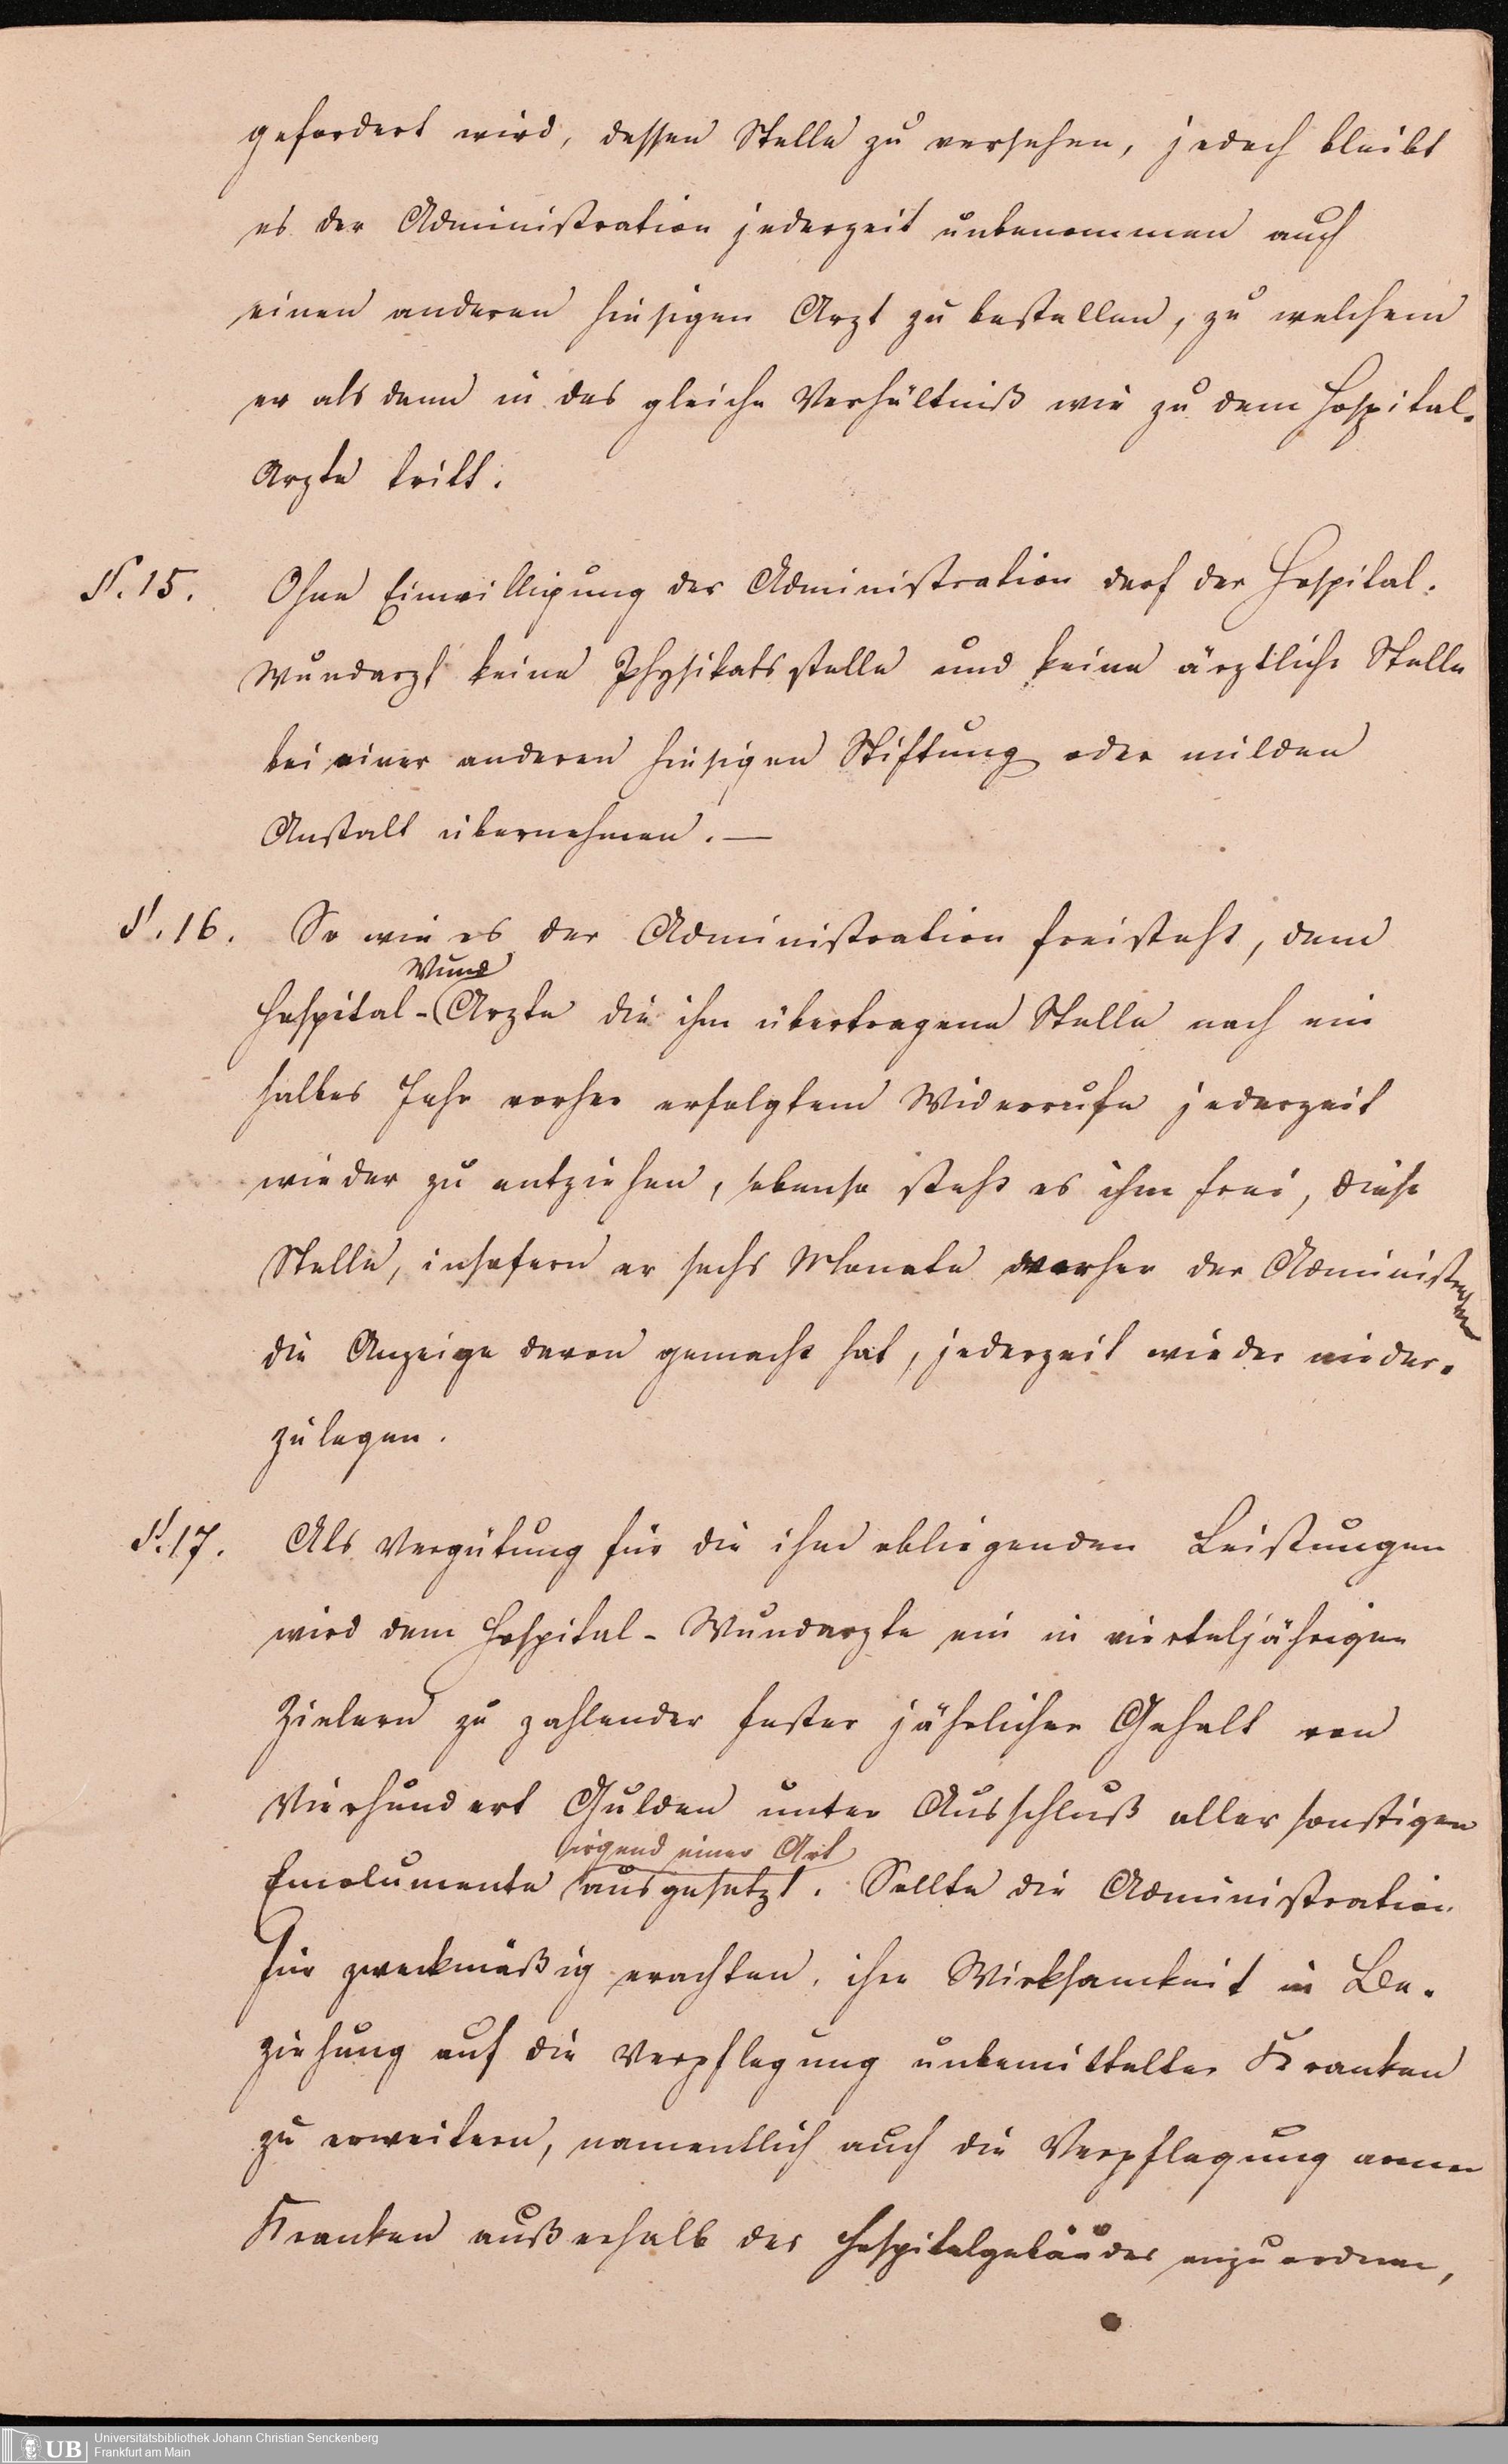 gefordert wird, dessen Stelle zu versehen, jedoch bleibt
es der Administration jederzeit unbenommen auch
einen anderen hiesigen Arzt zu bestellen, zu welchem
er als dann in das gleiche Verhältniß wie zu dem Hospital-
Arzte tritt.
§. 15. Ohne Einwilligung der Administration darf der Hospital-
Wundarzt keine Physikatsstelle und keine ärztliche Stelle
bei einer anderen hiesigen Stiftung oder milden
Anstalt übernehmen. —
§. 16. So wie es der Administration freisteht, dem
Wund
Hospital-Arzte die ihm übertragene Stelle nach ein
halbes Jahr vorher erfolgtem Widerrufe jederzeit
wieder zu entziehen, ebenso steht es ihm frei, diese
Stelle, insofern er sechs Monate vorher der Administration
die Anzeige davon gemacht hat, jederzeit wieder nieder-
zulegen.
§. 17. Als Vergütung für die ihm obliegenden Leistungen
wird dem Hospital-Wundarzte ein in vierteljährigen
Zielern zu zahlender fester jährlicher Gehalt von
Vierhundert Gulden unter Ausschluß aller sonstigen
irgend einer Art
Emolumente ausgesetzt. Sollte die Administration
für zweckmäßig erachten, ihre Wirksamkeit in Be-
ziehung auf die Verpflegung unbemittelter Kranken
zu erweitern, namentlich auch die Verpflegung armer
Kranken außerhalb des Hospitalgebäudes anzuordnen,
UB Universitätsbibliothek Johann Christian Senckenberg
Frankfurt am Main